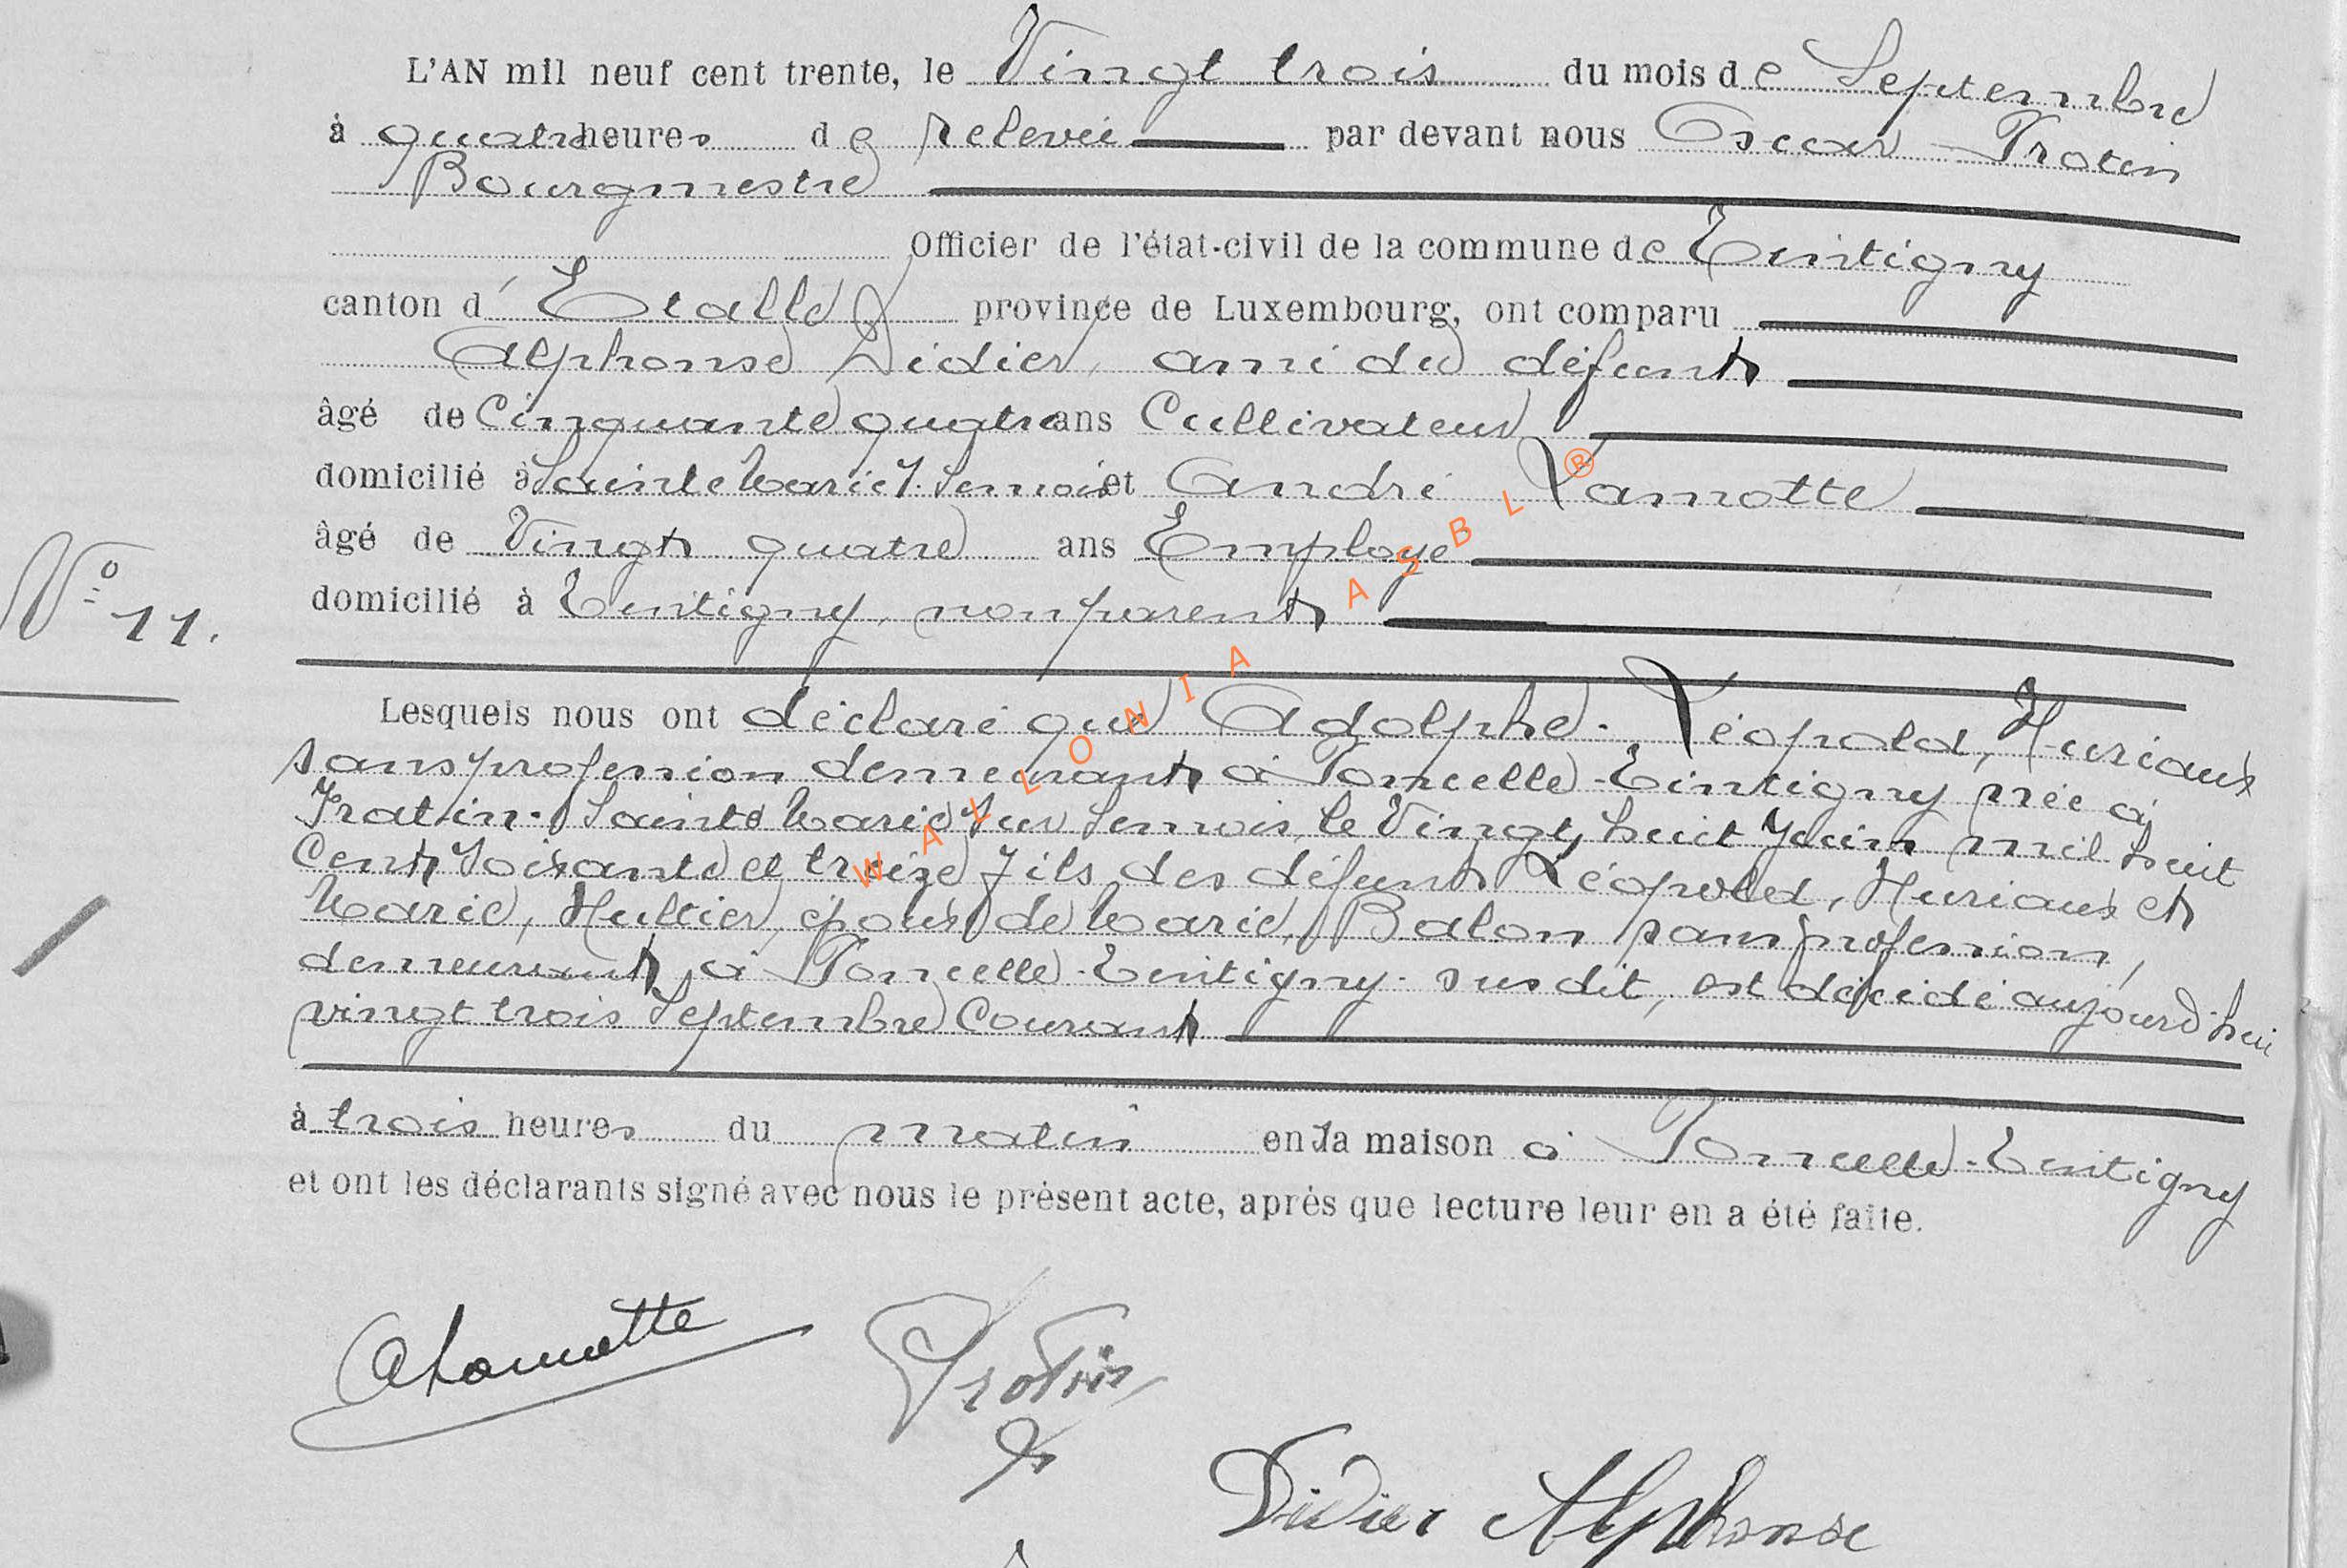 L'AN mil neuf cent trente, le Vingt trois du mois de Septembre
à quatre heures de relevée par devant nous Oscar Protin
Bourgmestre
Officier de l'état-civil de la commune de Tintigny
canton d'Etalle province de Luxembourg, ont comparu
Alphonse Didier, ami du défunt
âgé de Cinquante quatre ans Cultivateur
domicilié à Sainte Marie s. Semois et André Lamotte
âgé de Vingt quatre ans Employé
domicilié à Tintigny, non parent
Nº 11.
Lesquels nous ont déclaré que Adolphe-Léopold, Huriaux
sans profession demeurant à Poncelle-Tintigny née à
Fratin-Sainte Marie sur Semois, le Vingt huit Juin mil huit
Cent soixante et treize fils des défunts Léopold, Huriaux et
Marie, Hultier, époux de Marie, Balon sans profession,
demeurant à Poncelle-Tintigny-susdit, est décédé aujourd'hui
vingt trois Septembre Courant
à trois heures du matin en sa maison à Poncelle-Tintigny
et ont les déclarants signé avec nous le présent acte, après que lecture leur en a été faite.
ALamotte
Protin
Didier Alphonse
WALLONIA ASBL ®